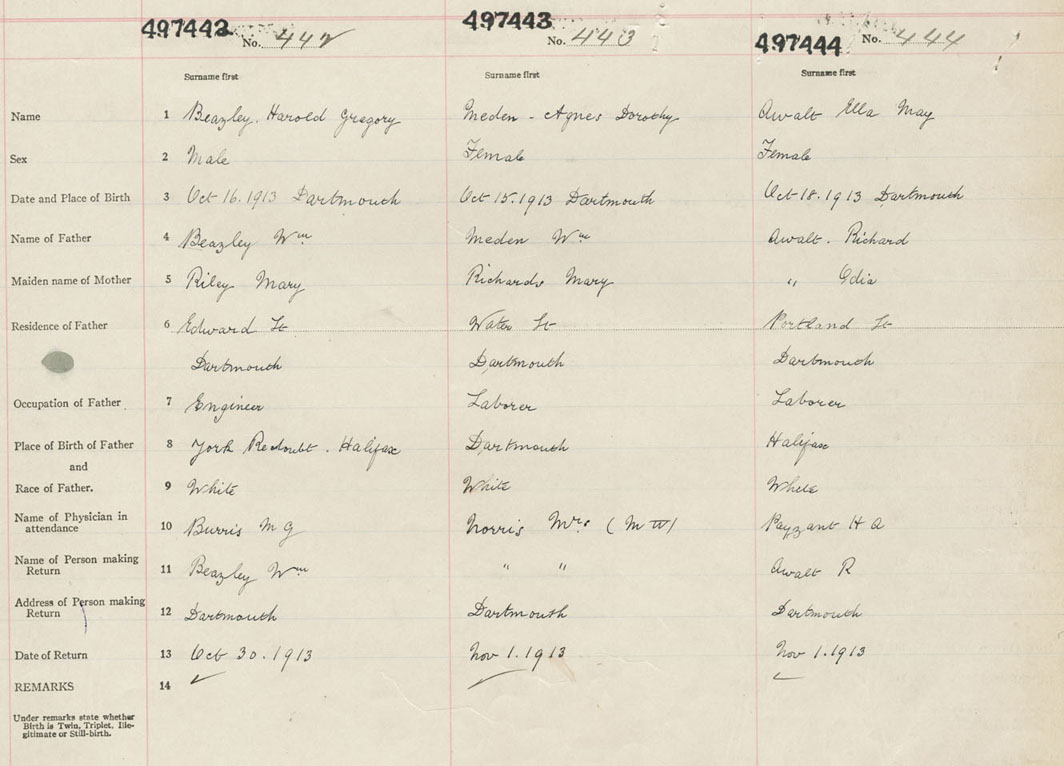 497442 No. 442 497443 No. 443 497444 No. 444
Surname first Surname first Surname first
Name 1 Beazley. Harold Gregory Meden - Agnes Dorothy Awalt Ella May
Sex 2 Male Female Female
Date and Place of Birth 3 Oct 16. 1913 Dartmouth Oct 15. 1913 Dartmouth Oct 18. 1913 Dartmouth
Name of Father 4 Beazley Wm Meden Wm Awalt. Richard
Maiden name of Mother 5 Riley Mary Richards Mary " Edia
Residence of Father 6 Edward St Water St Portland St
Dartmouth Dartmouth Dartmouth
Occupation of Father 7 Engineer Laborer Laborer
Place of Birth of Father 8 York Redoubt. Halifax Dartmouth Halifax
and
Race of Father. 9 White White White
Name of Physician in
attendance 10 Burris M G Norris Mrs (M W) Payzant H A
Name of Person making
Return 11 Beazley Wm " " Awalt R
Address of Person making
Return 12 Dartmouth Dartmouth Dartmouth
Date of Return 13 Oct 30. 1913 Nov 1. 1913 Nov 1. 1913
REMARKS 14
Under remarks state whether
Birth is Twin, Triplet, Ille-
gitimate or Still-birth.